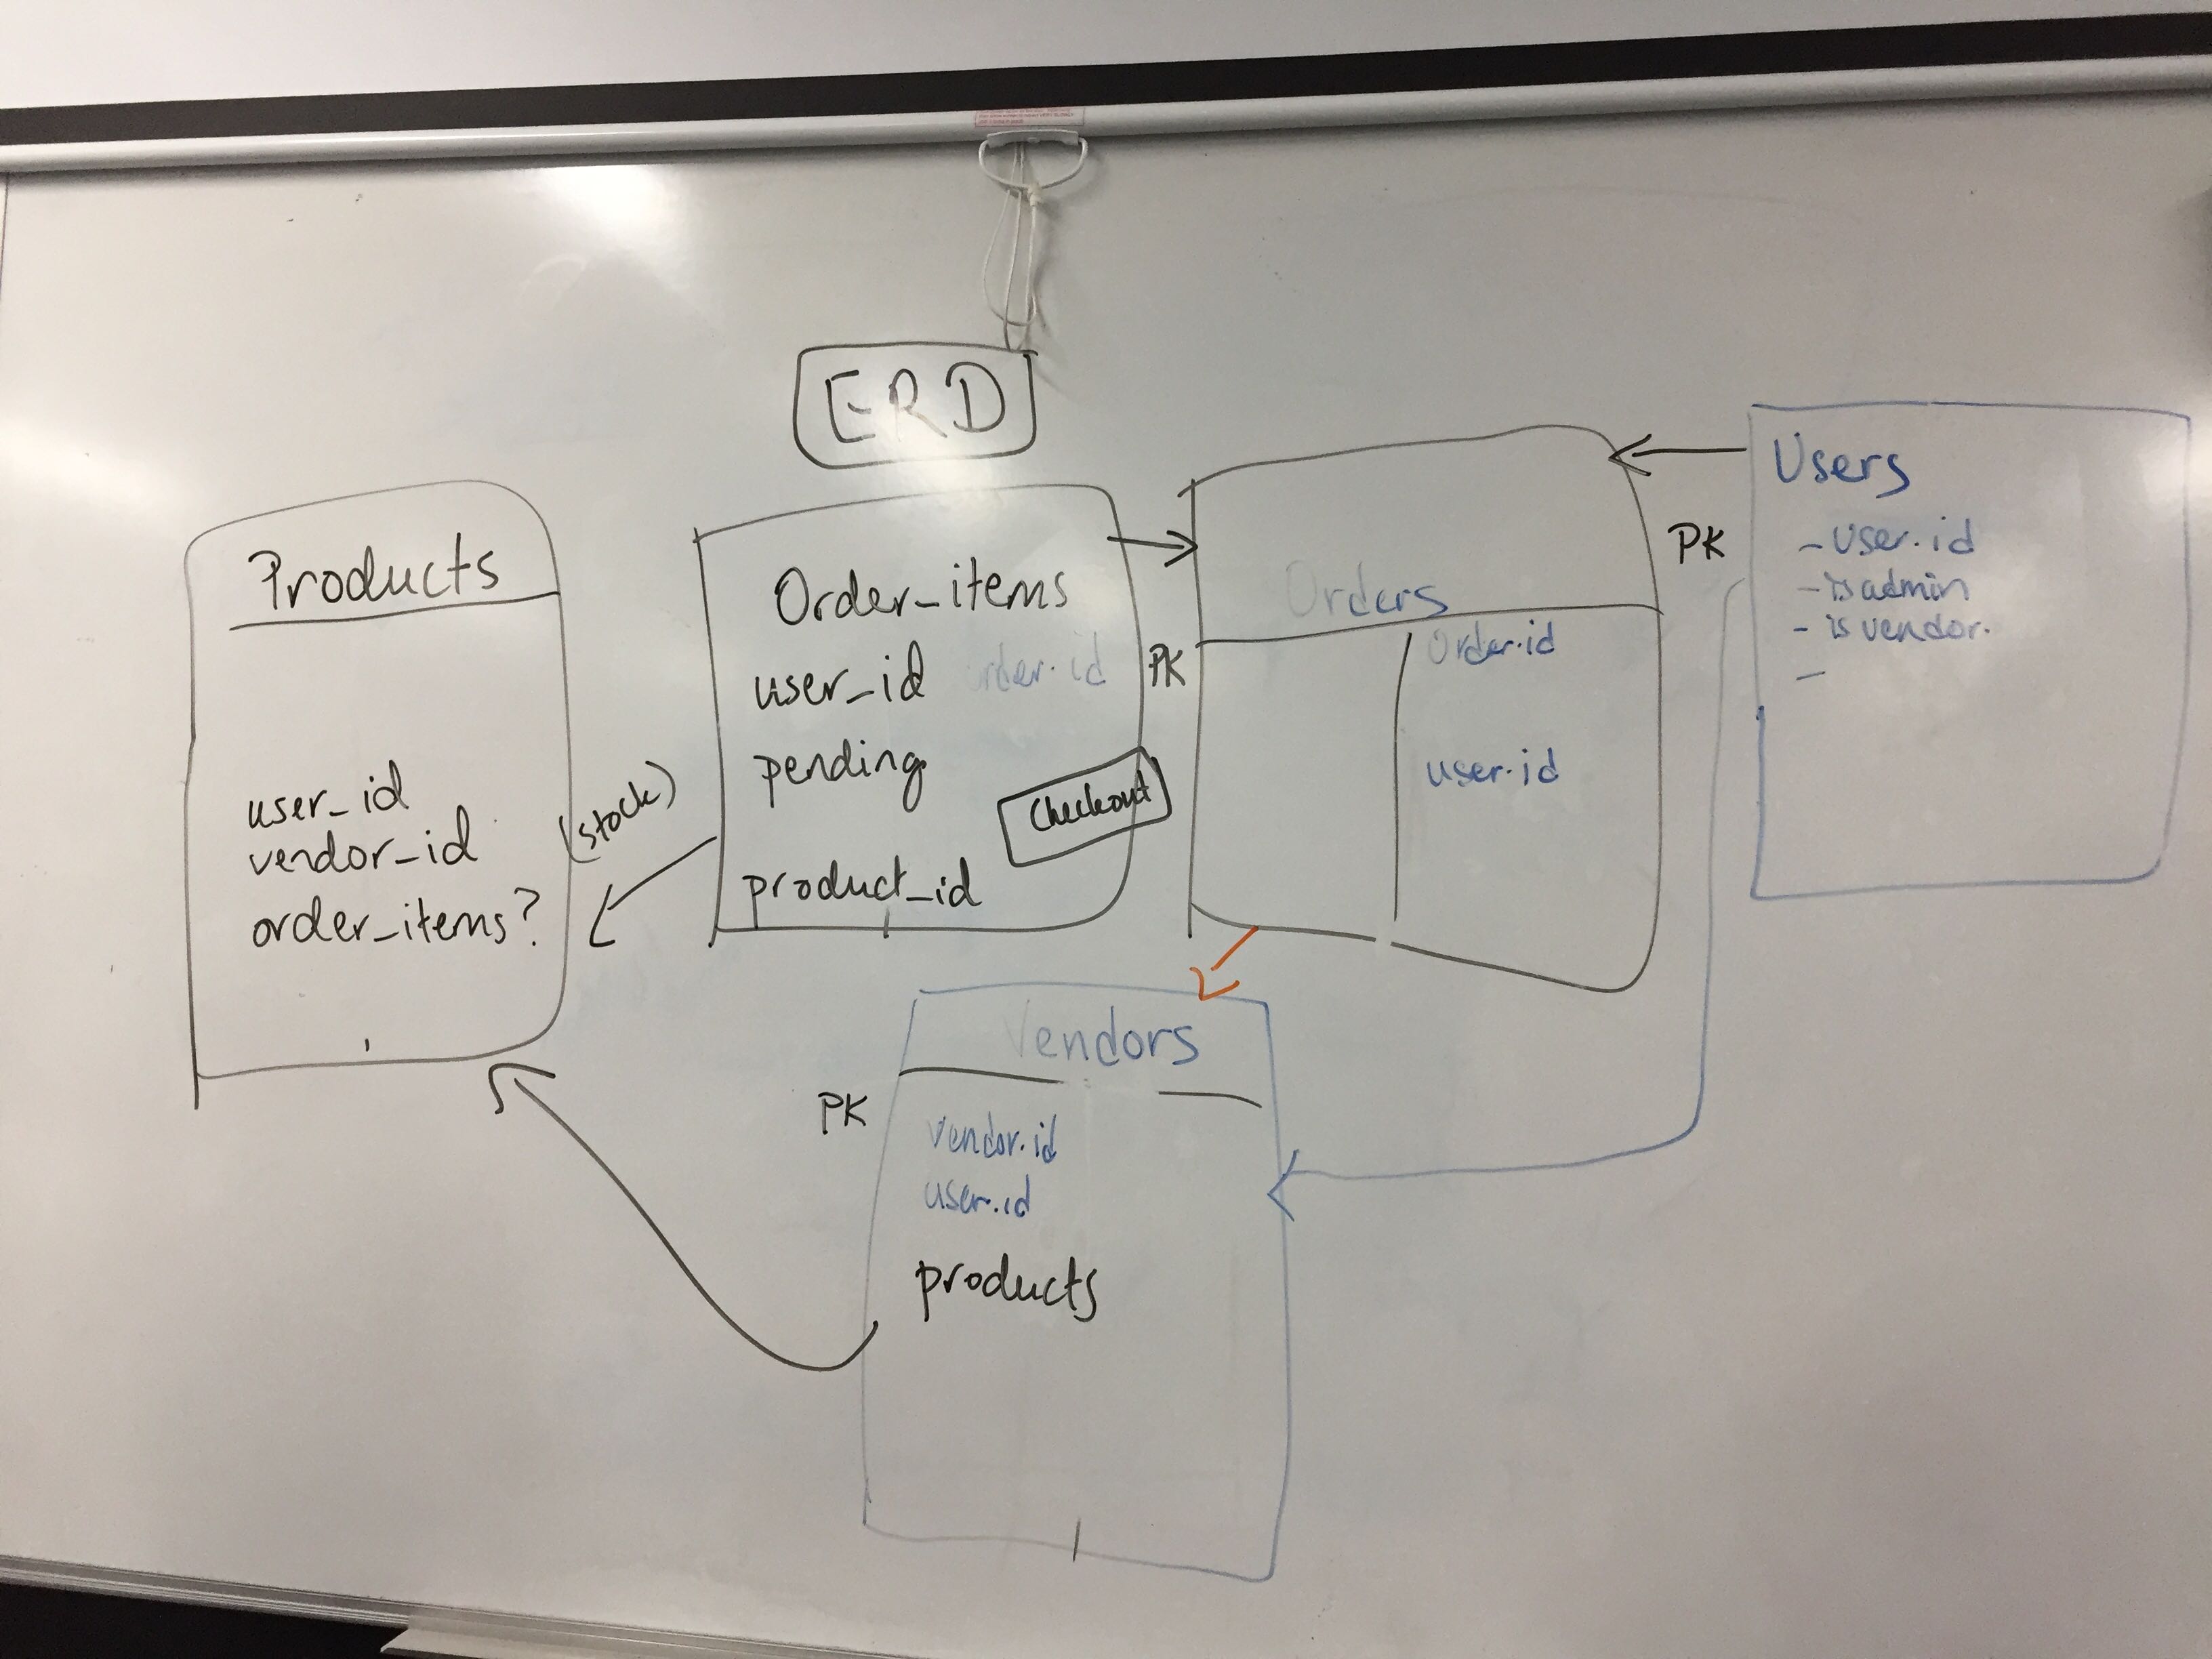 ERD
Products
user_id
vendor_id
order_items?
(stock)
Order_items
user_id order.id
pending
Checkout
product_id
Orders
PK Order.id
user.id
Users
PK - user.id
- is admin
- is vendor.
-
Vendors
PK vendor.id
user.id
products